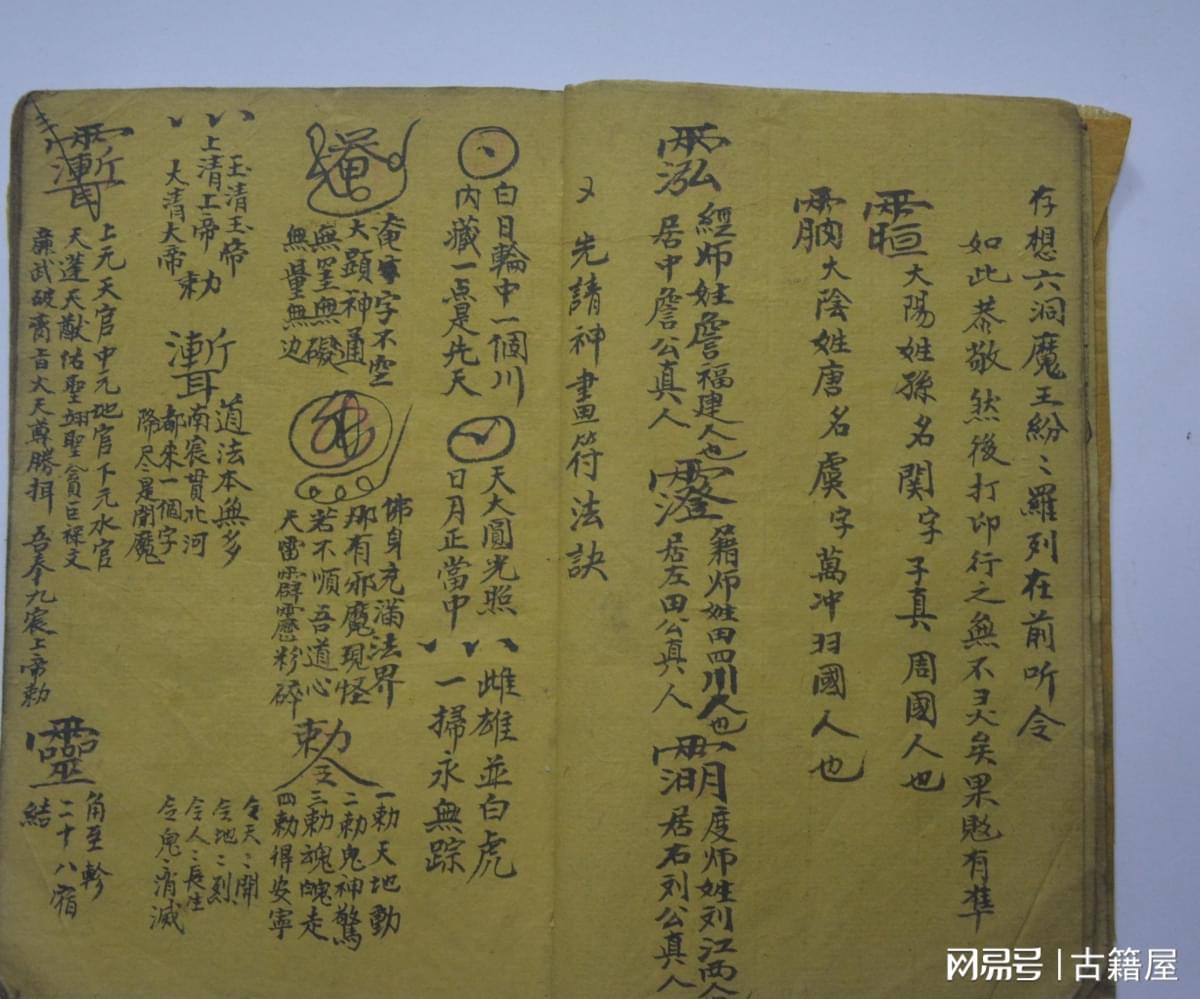 存想六洞魔王紛〻羅列在前听令
如此恭敬然後打印行之無不灵矣果敗有準
大陽姓孫名関字子真周國人也
大陰姓唐名虞字萬冲羽國人也
經师姓詹福建人也
居中詹公真人
籍师姓田四川人也
居左田公真人
度师姓刘江西人
居右刘公真人
又先請神畫符法訣
白日輪中一個川
内藏一点是先天
天大圓光照
日月正當中
雌雄並白虎
一掃永無踪
唵字不空
大顯神通
無罣無礙
無量無边
佛身充滿法界
那有邪魔現怪
若不順吾道心
天雷霹靂粉碎
勅令
一勅天地動
二勅鬼神驚
三勅魂魄走
四勅得安寧
令天〻開
令地〻刻
令人〻長生
令鬼〻消滅
玉清玉帝
上清上帝勅
大清大帝
道法本無多
南宸貫北河
都來一個字
降尽是閑魔
上元天官中元地官下元水官
天蓬天猷佑聖翊聖貪巨祿文
廉武破
大天尊勝揖
吾奉九宸上帝勅
靈
角至軫
二十八宿
結
网易号 | 古籍屋